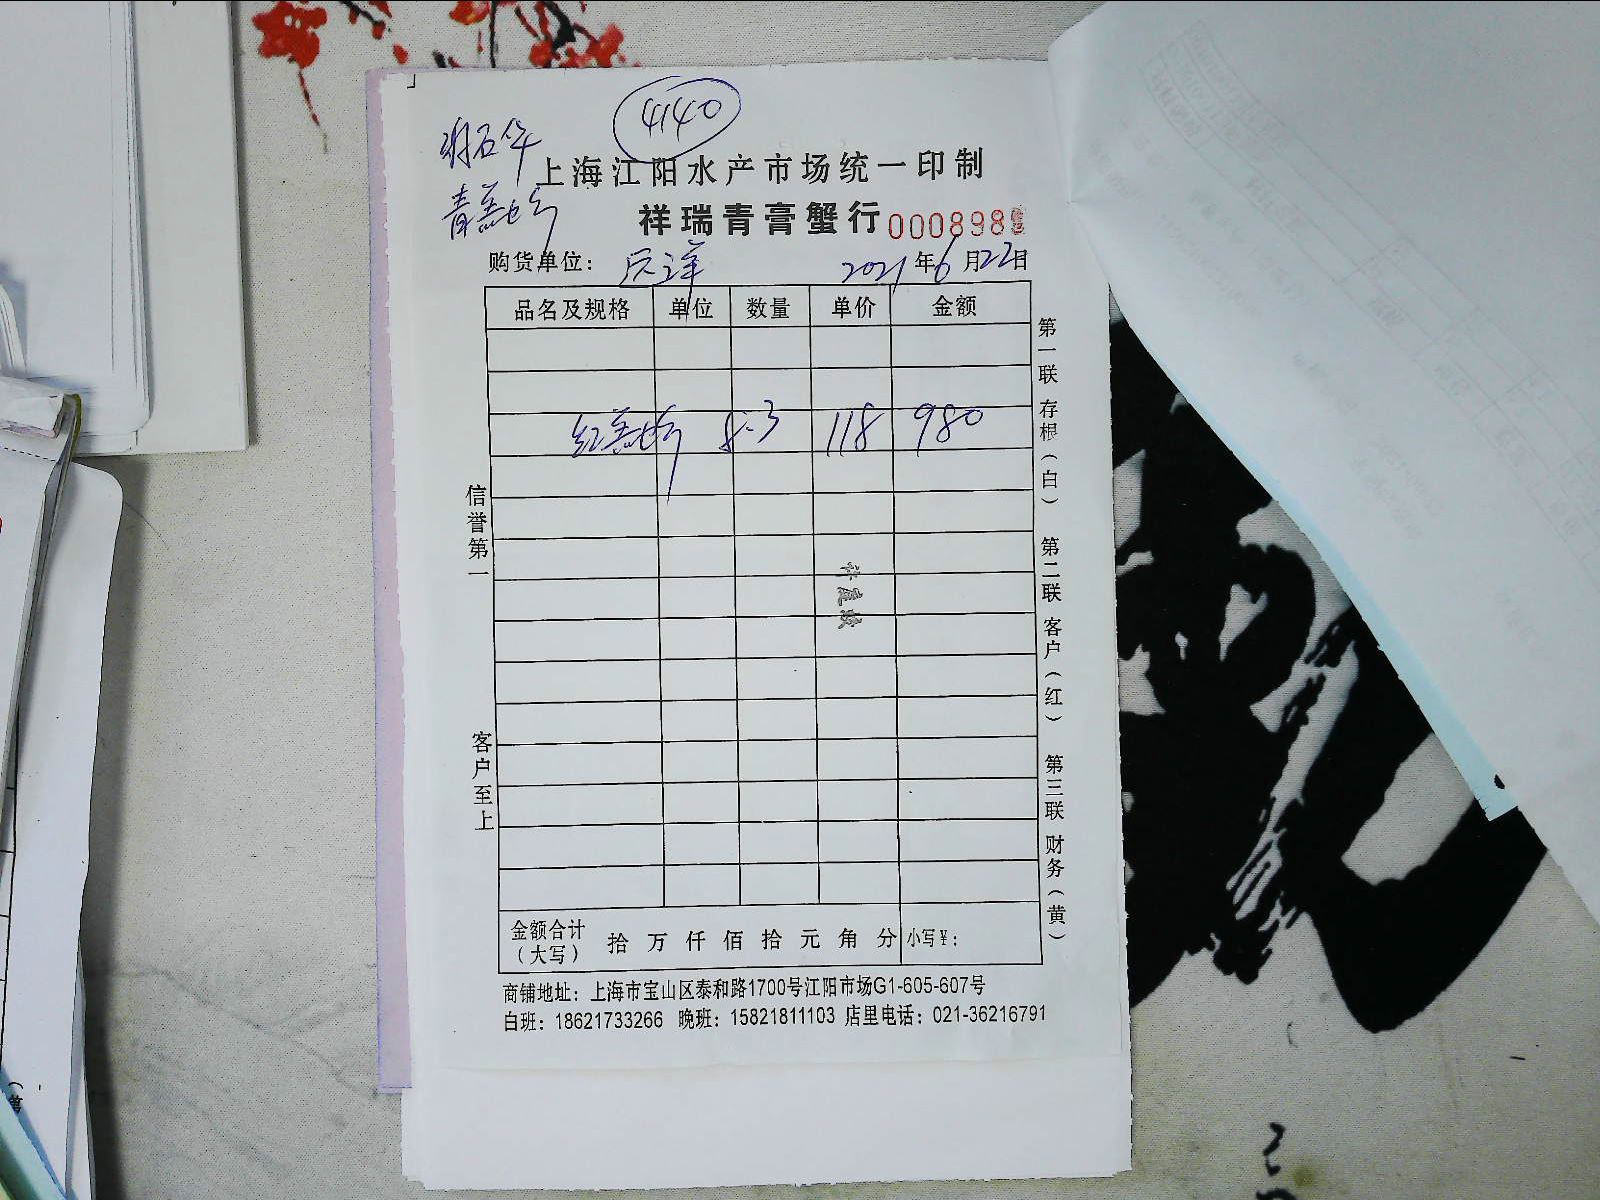 4140
上海江阳水产市场统一印制
祥瑞青膏蟹行 000898
购货单位: 2021年6月22日
品名及规格 单位 数量 单价 金额
红膏 8.3 118 980
信誉第一
客户至上
第一联 存根(白) 第二联 客户(红) 第三联 财务(黄)
金额合计(大写) 拾 万 仟 佰 拾 元 角 分 小写¥:
商铺地址: 上海市宝山区泰和路1700号江阳市场G1-605-607号
白班: 18621733266 晚班: 15821811103 店里电话: 021-36216791